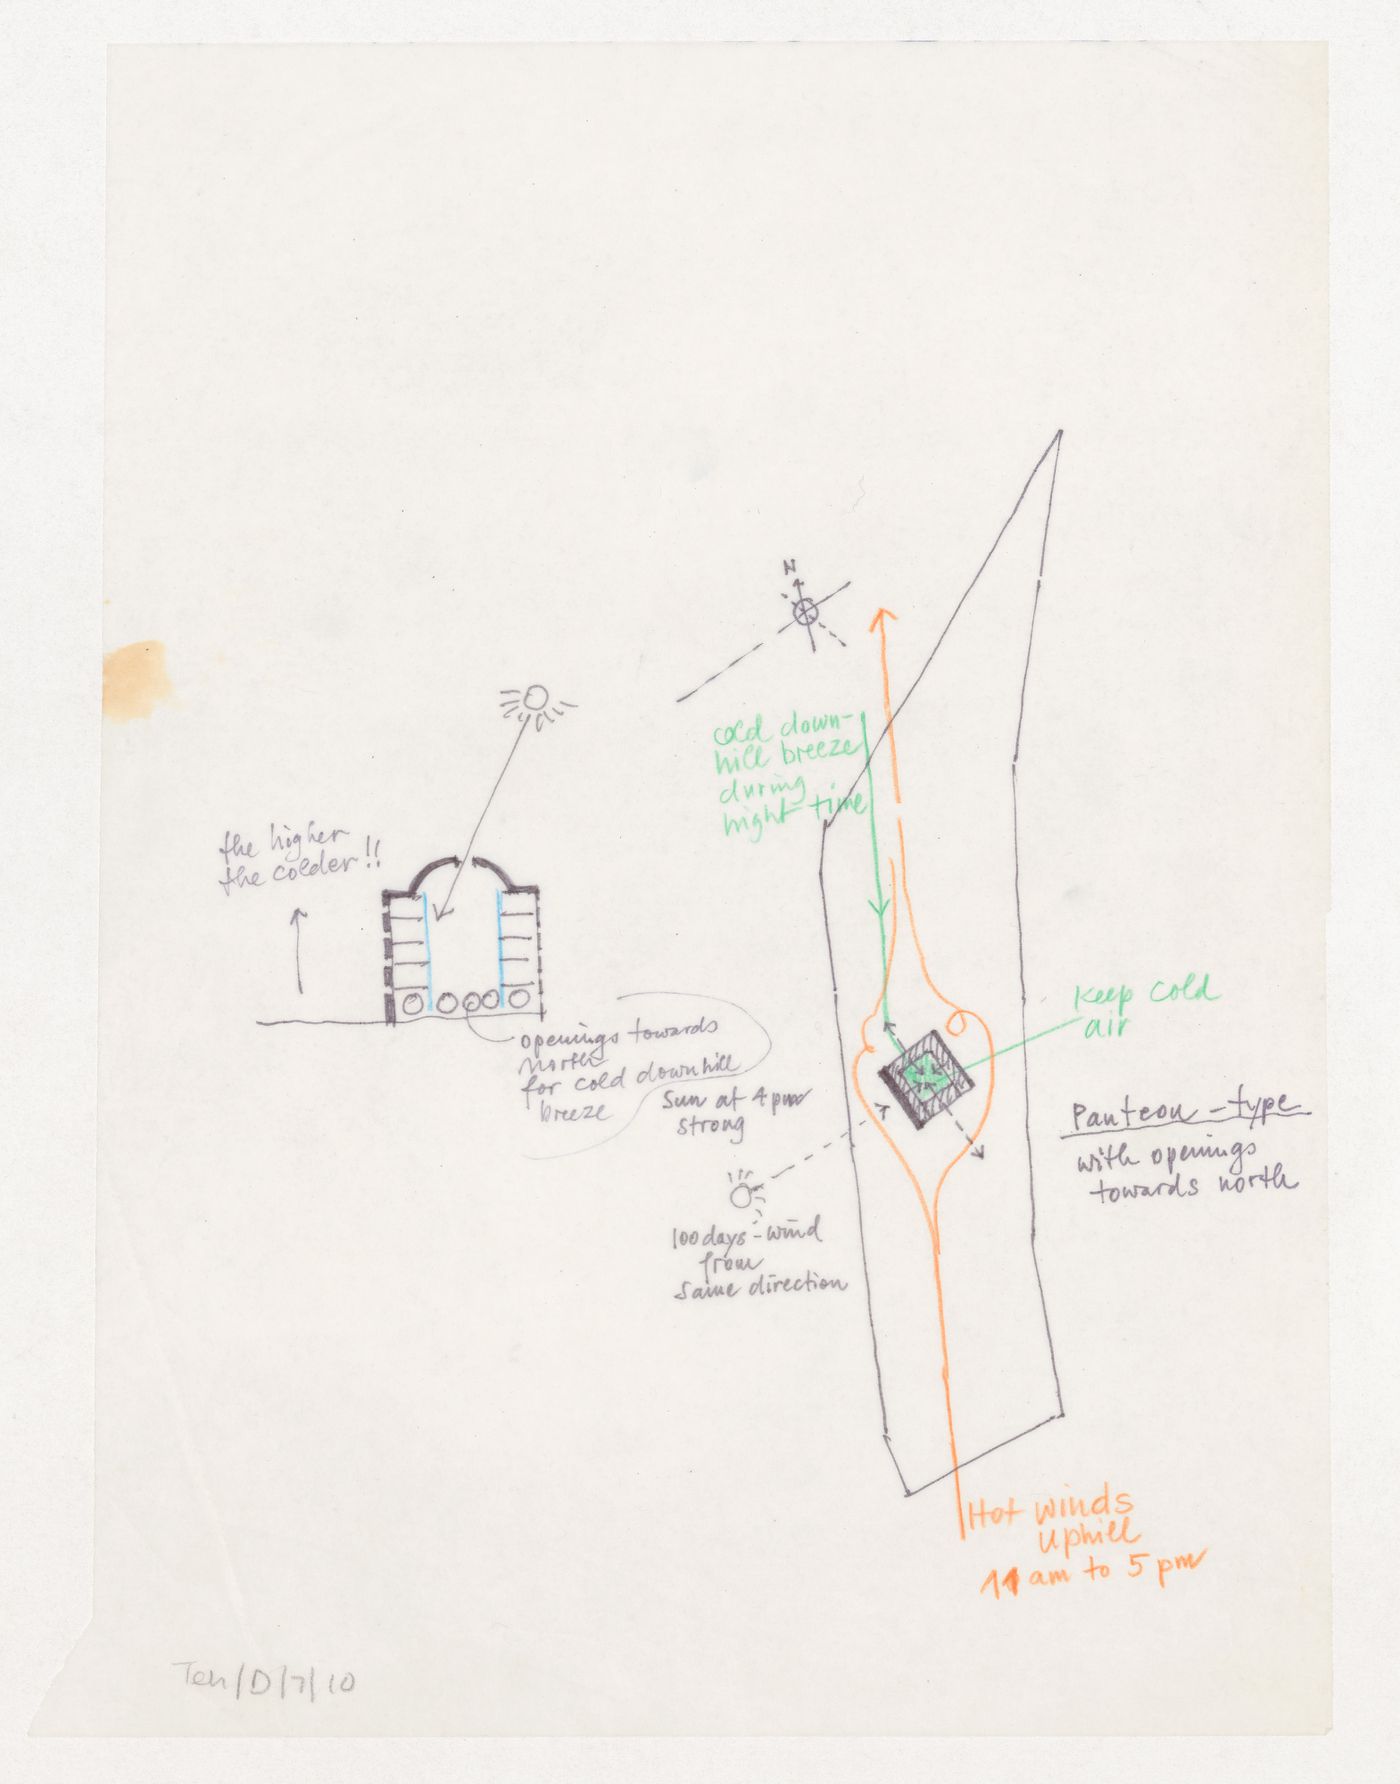 N
cold down-
hill breeze
during
night time
the higher
the colder!!
openings towards
north
for cold downhill
breeze
Sun at 4 pm
strong
Keep cold
air
Panteon-type
with openings
towards north
100 days-wind
from
same direction
Hot winds
uphill
11 am to 5 pm
Teh/D/7/10